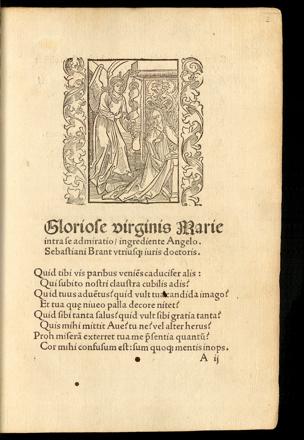 2
Gloriose virginis Marie
intra se admiratio/ ingrediente Angelo.
Sebastiani Brant vtriusqꝫ iuris doctoris.
Quid tibi vis paribus veniẽs caducifer alis :
Qui subito nostri claustra cubilis adis?
Quid tuus aduẽtus? quid vult tua candida imago?
Et tua que niueo palla decore nitet?
Quid sibi tanta salus? quid vult sibi gratia tanta?
Quis mihi mittit Aue? tu ne? vel alter herus?
Proh miserã exterret tua me p̃sentia quantũ?
Cor mihi confusum est: sum quoqꝫ mentis inops.
A ij